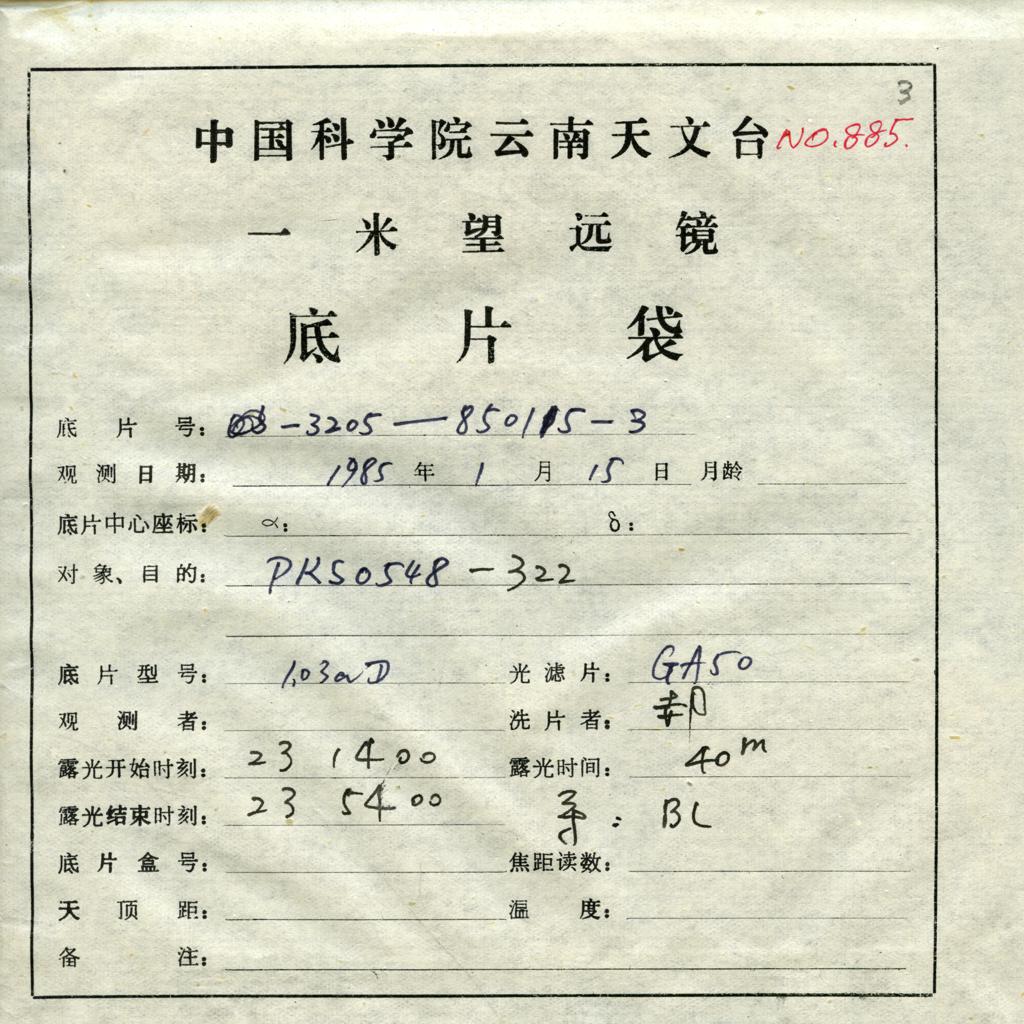 3
中国科学院云南天文台 NO.885.
一米望远镜
底片袋
底片号: -3205—850115-3
观测日期: 1985 年 1 月 15 日 月龄
底片中心座标: α: δ:
对象、目的: PKS0548-322
底片型号: 103aD 光滤片: GA50
观测者: 洗片者:
露光开始时刻: 23 14 00 露光时间: 40m
露光结束时刻: 23 54 00 : BL
底片盒号: 焦距读数:
天顶距: 温度:
备注: